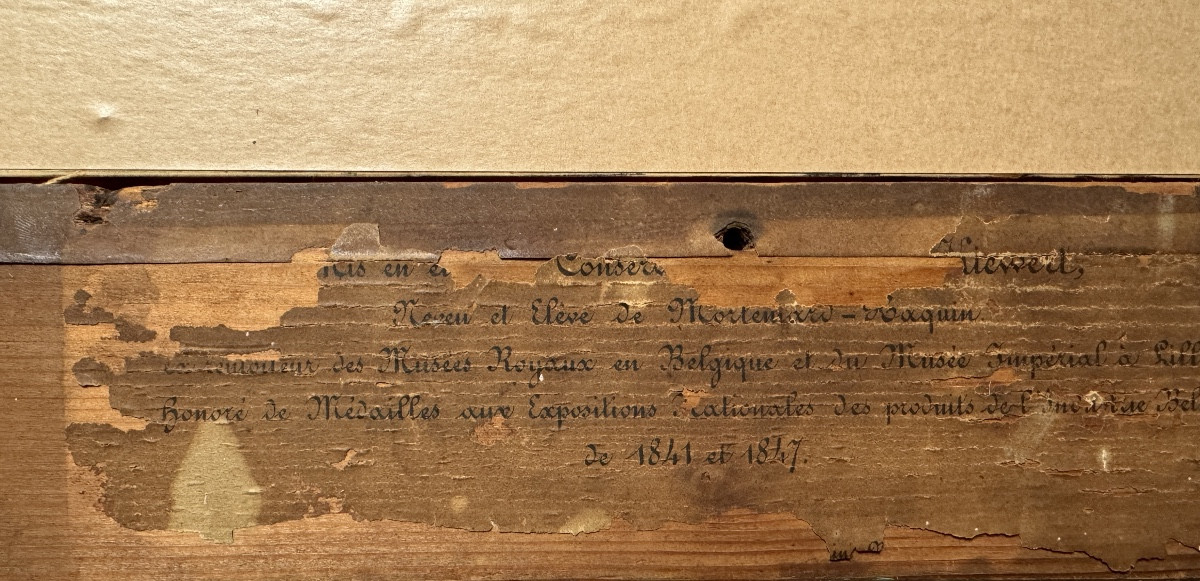 Mis en et Conserv Kiewert,
Neveu et Elève de Mortemard-Vaquin
des Musées Royaux en Belgique et du Musée Impérial à Lill
Honoré de Médailles aux Expositions Nationales des produits de l'Industrie Bel
de 1841 et 1847.